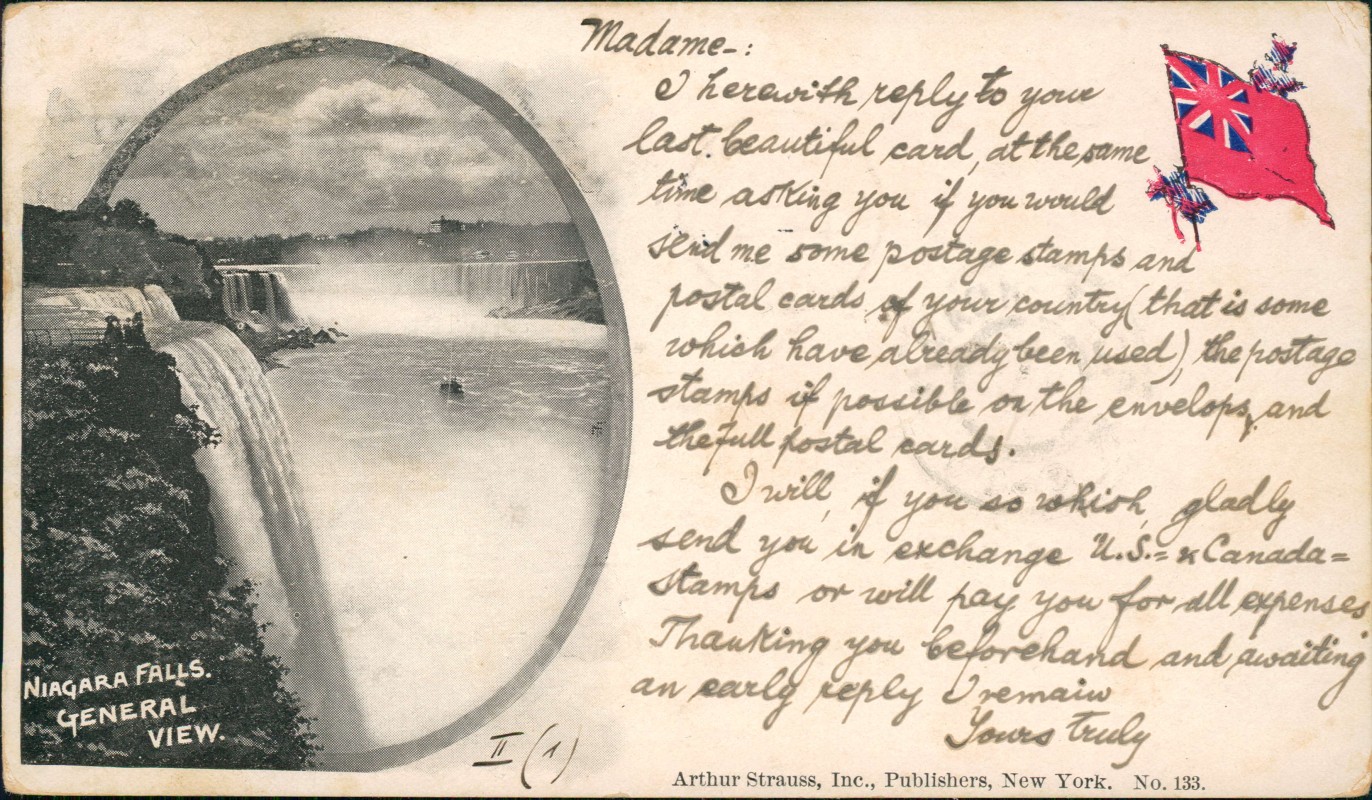 Madame-:
I herewith reply to your
last beautiful card, at the same
time asking you if you would
send me some postage stamps and
postal cards of your country (that is some
which have already been used), the postage
stamps if possible on the envelops, and
the full postal cards.
I will, if you so which, gladly
send you in exchange U.S.= & Canada=
stamps or will pay you for all expenses.
Thanking you beforehand and awaiting
an early reply I remain
Yours truly
NIAGARA FALLS.
GENERAL
VIEW.
II (1)
Arthur Strauss, Inc., Publishers, New York. No. 133.